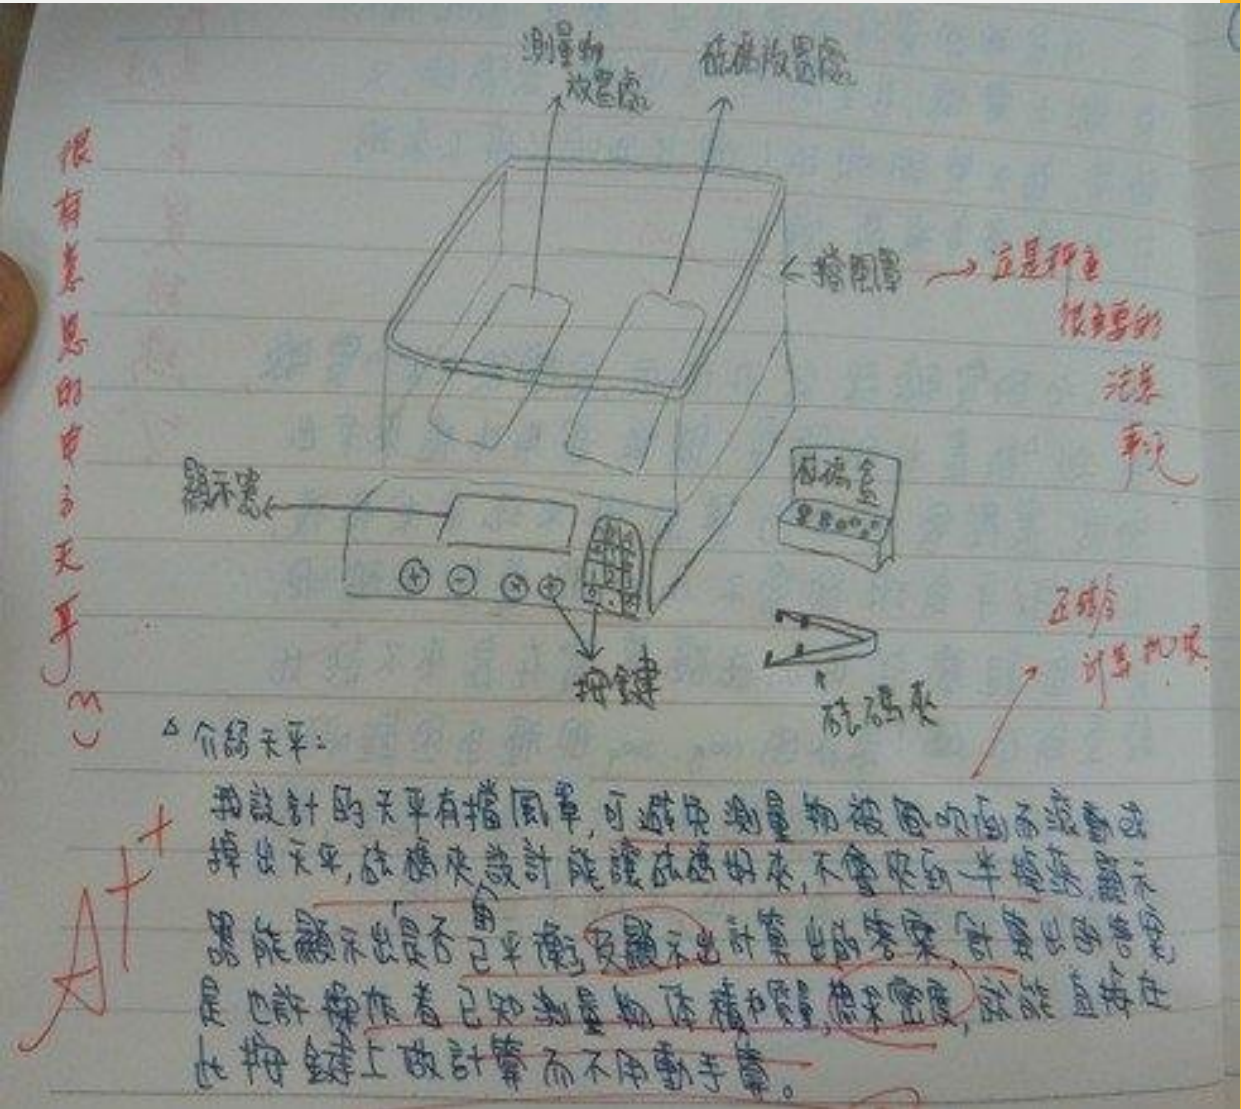 測量物
放置處
砝碼放置處
擋風罩
這是秤重
很重要的
注意
事項
很有意思的電子天平
顯示器
砝碼盒
按鍵
砝碼夾
正確
計算
△介紹天平:
我設計的天平有擋風罩,可避免測量物被風吹到而滾動或
掉出天平,砝碼夾設計能讓砝碼好夾,不會夾到一半掉落,顯示
器能顯示出是否已平衡,及顯示出計算出的答案,計算出的答案
是也許操作者已知測量物体積和質量,想求密度,就能直接在
此按鍵上做計算而不用動手算。
A++